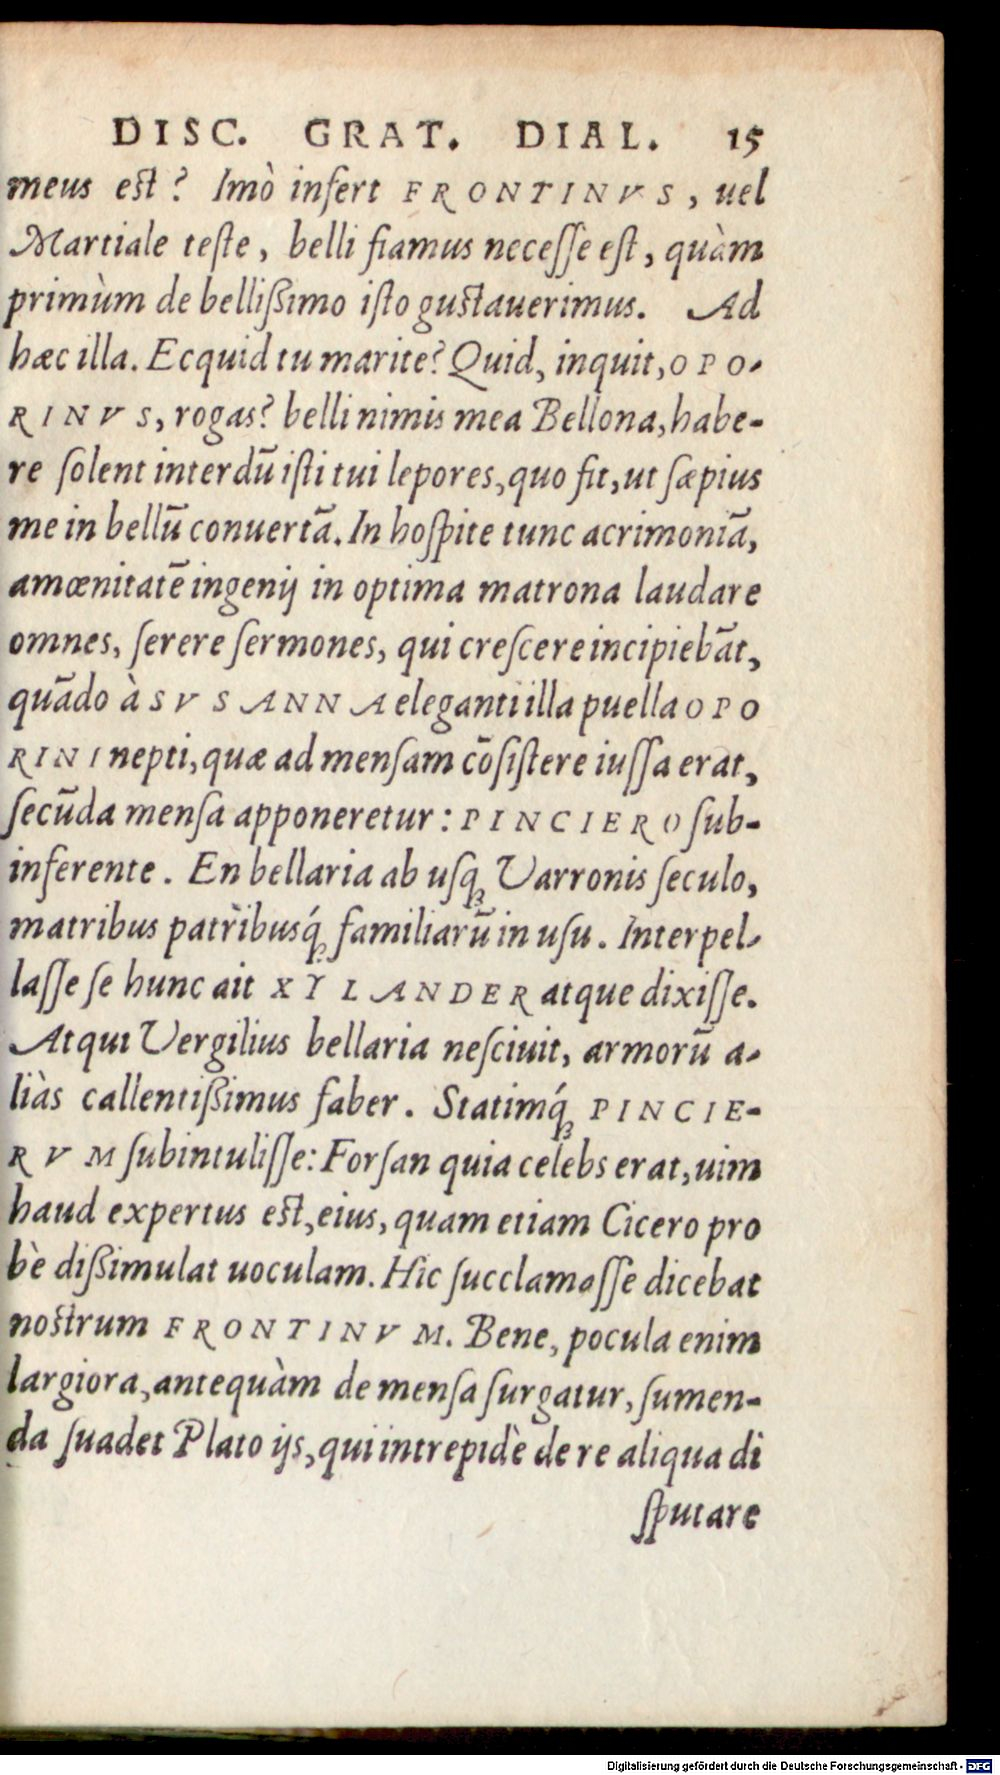 DISC. GRAT. DIAL. 15
meus est? Imò infert FRONTINVS, uel
Martiale teste, belli fiamus necesse est, quàm
primùm de bellißimo isto gustauerimus. Ad
hæc illa. Ecquid tu marite? Quid, inquit, OPO-
RINVS, rogas? belli nimis mea Bellona, habe-
re solent interdū isti tui lepores, quo fit, ut sæpius
me in bellū conuertā. In hospite tunc acrimoniā,
amœnitatē ingenij in optima matrona laudare
omnes, serere sermones, qui crescere incipiebāt,
quādo à SVSANNA eleganti illa puella OPO
RINI nepti, quæ ad mensam cōsistere iussa erat,
secūda mensa apponeretur: PINCIERO sub-
inferente. En bellaria ab usq; Varronis seculo,
matribus patribusq́; familiarū in usu. Interpel-
lasse se hunc ait XYLANDER atque dixisse.
Atqui Vergilius bellaria nesciuit, armorū a-
liàs callentißimus faber. Statimq́; PINCIE-
RVM subintulisse: Forsan quia celebs erat, uim
haud expertus est, eius, quam etiam Cicero pro
bè dißimulat uoculam. Hic succlamasse dicebat
nostrum FRONTINVM. Bene, pocula enim
largiora, antequàm de mensa surgatur, sumen-
da suadet Plato ijs, qui intrepidè de re aliqua di
sputare
Digitalisierung gefördert durch die Deutsche Forschungsgemeinschaft - DFG